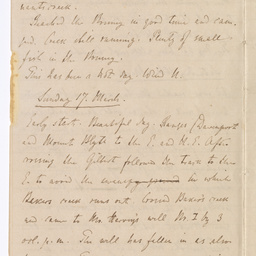 wants creek.
Reached the Binney in good time and cam-
ped. Creek still running. Plenty of small
fish in the Binney.
This has been a hot day. Wind N.
Sunday 17. March.
Early start. Beautiful day. Ranges (Davenport
and Mount Blyth to the E. and N.E. After
crossing the Gilbert followed the track to the
E. to avoid the swampy ground in which
Bakers creek runs out. Crossed Bakers creek
and came to Mr. Harveys well No. I by 3
ocl. p.m. The well has fallen in as also